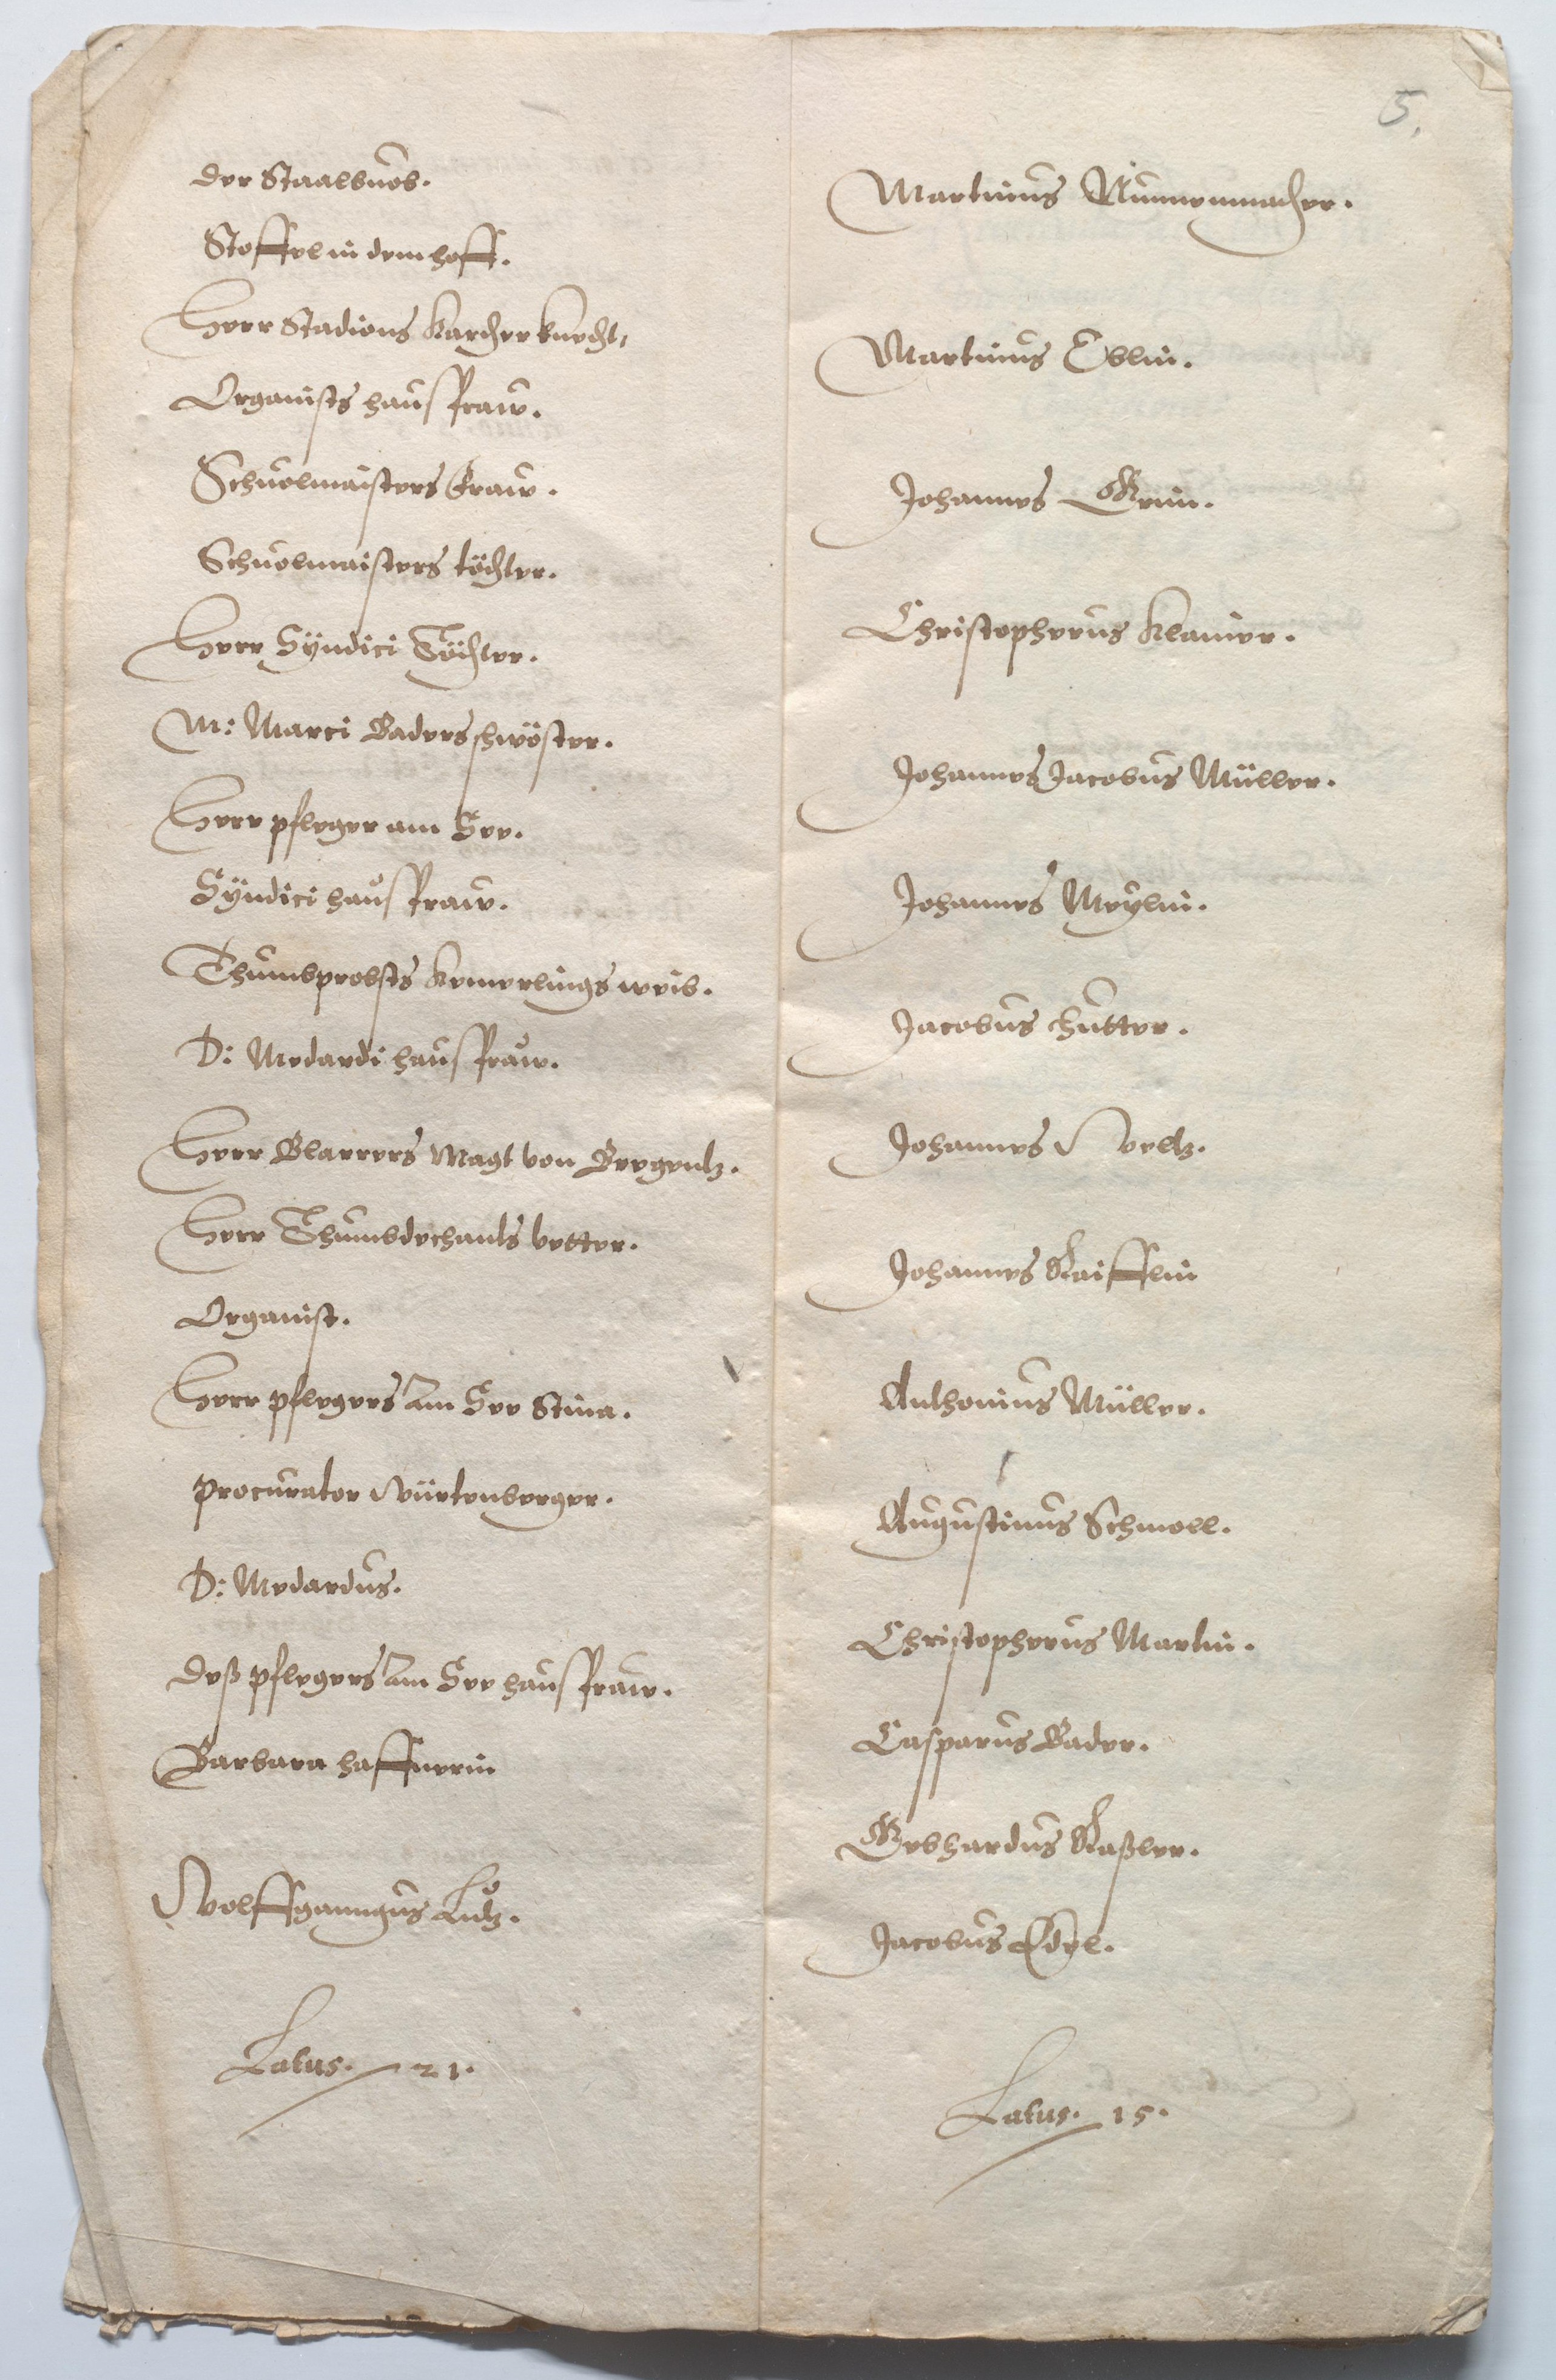 der Staalbuob.
Stoffel in dem hoff.
Herr Stadions Karcherknecht,
Organists hausfraw.
Schuolmaisters Fraw.
Schuolmaisters töchter.
Herr Syndici Töchter.
M: Marci Baders schwöster.
Herr pfleger am See.
Syndici hausfraw.
Thumbprobsts Kemerlings weib.
D: Medardi hausfraw.
Herr Blarrers Magt von Bregentz.
Herr Thumbdechants vetter.
Organist.
Herr pflegers am See Stina.
Procurator Würtenberger.
D: Medardus.
deß pflegers am See hausfraw.
Barbara haffnerin
Wolffganngus Lutz.
Latus. 21.
5.
Martinus Nunnenmacher.
Martinus Eblin.
Johannes Grim.
Christopherus Klainer.
Johannes Jacobus Müller.
Johannes Meylin.
Jacobus hutter.
Johannes Veltz.
Johannes Raifflin
Anthonius Müller.
Augustinus Schmoll.
Christopherus Martin.
Casparus Bader.
Gebhardus Raßler.
Jacobus Edel.
Latus. 15.